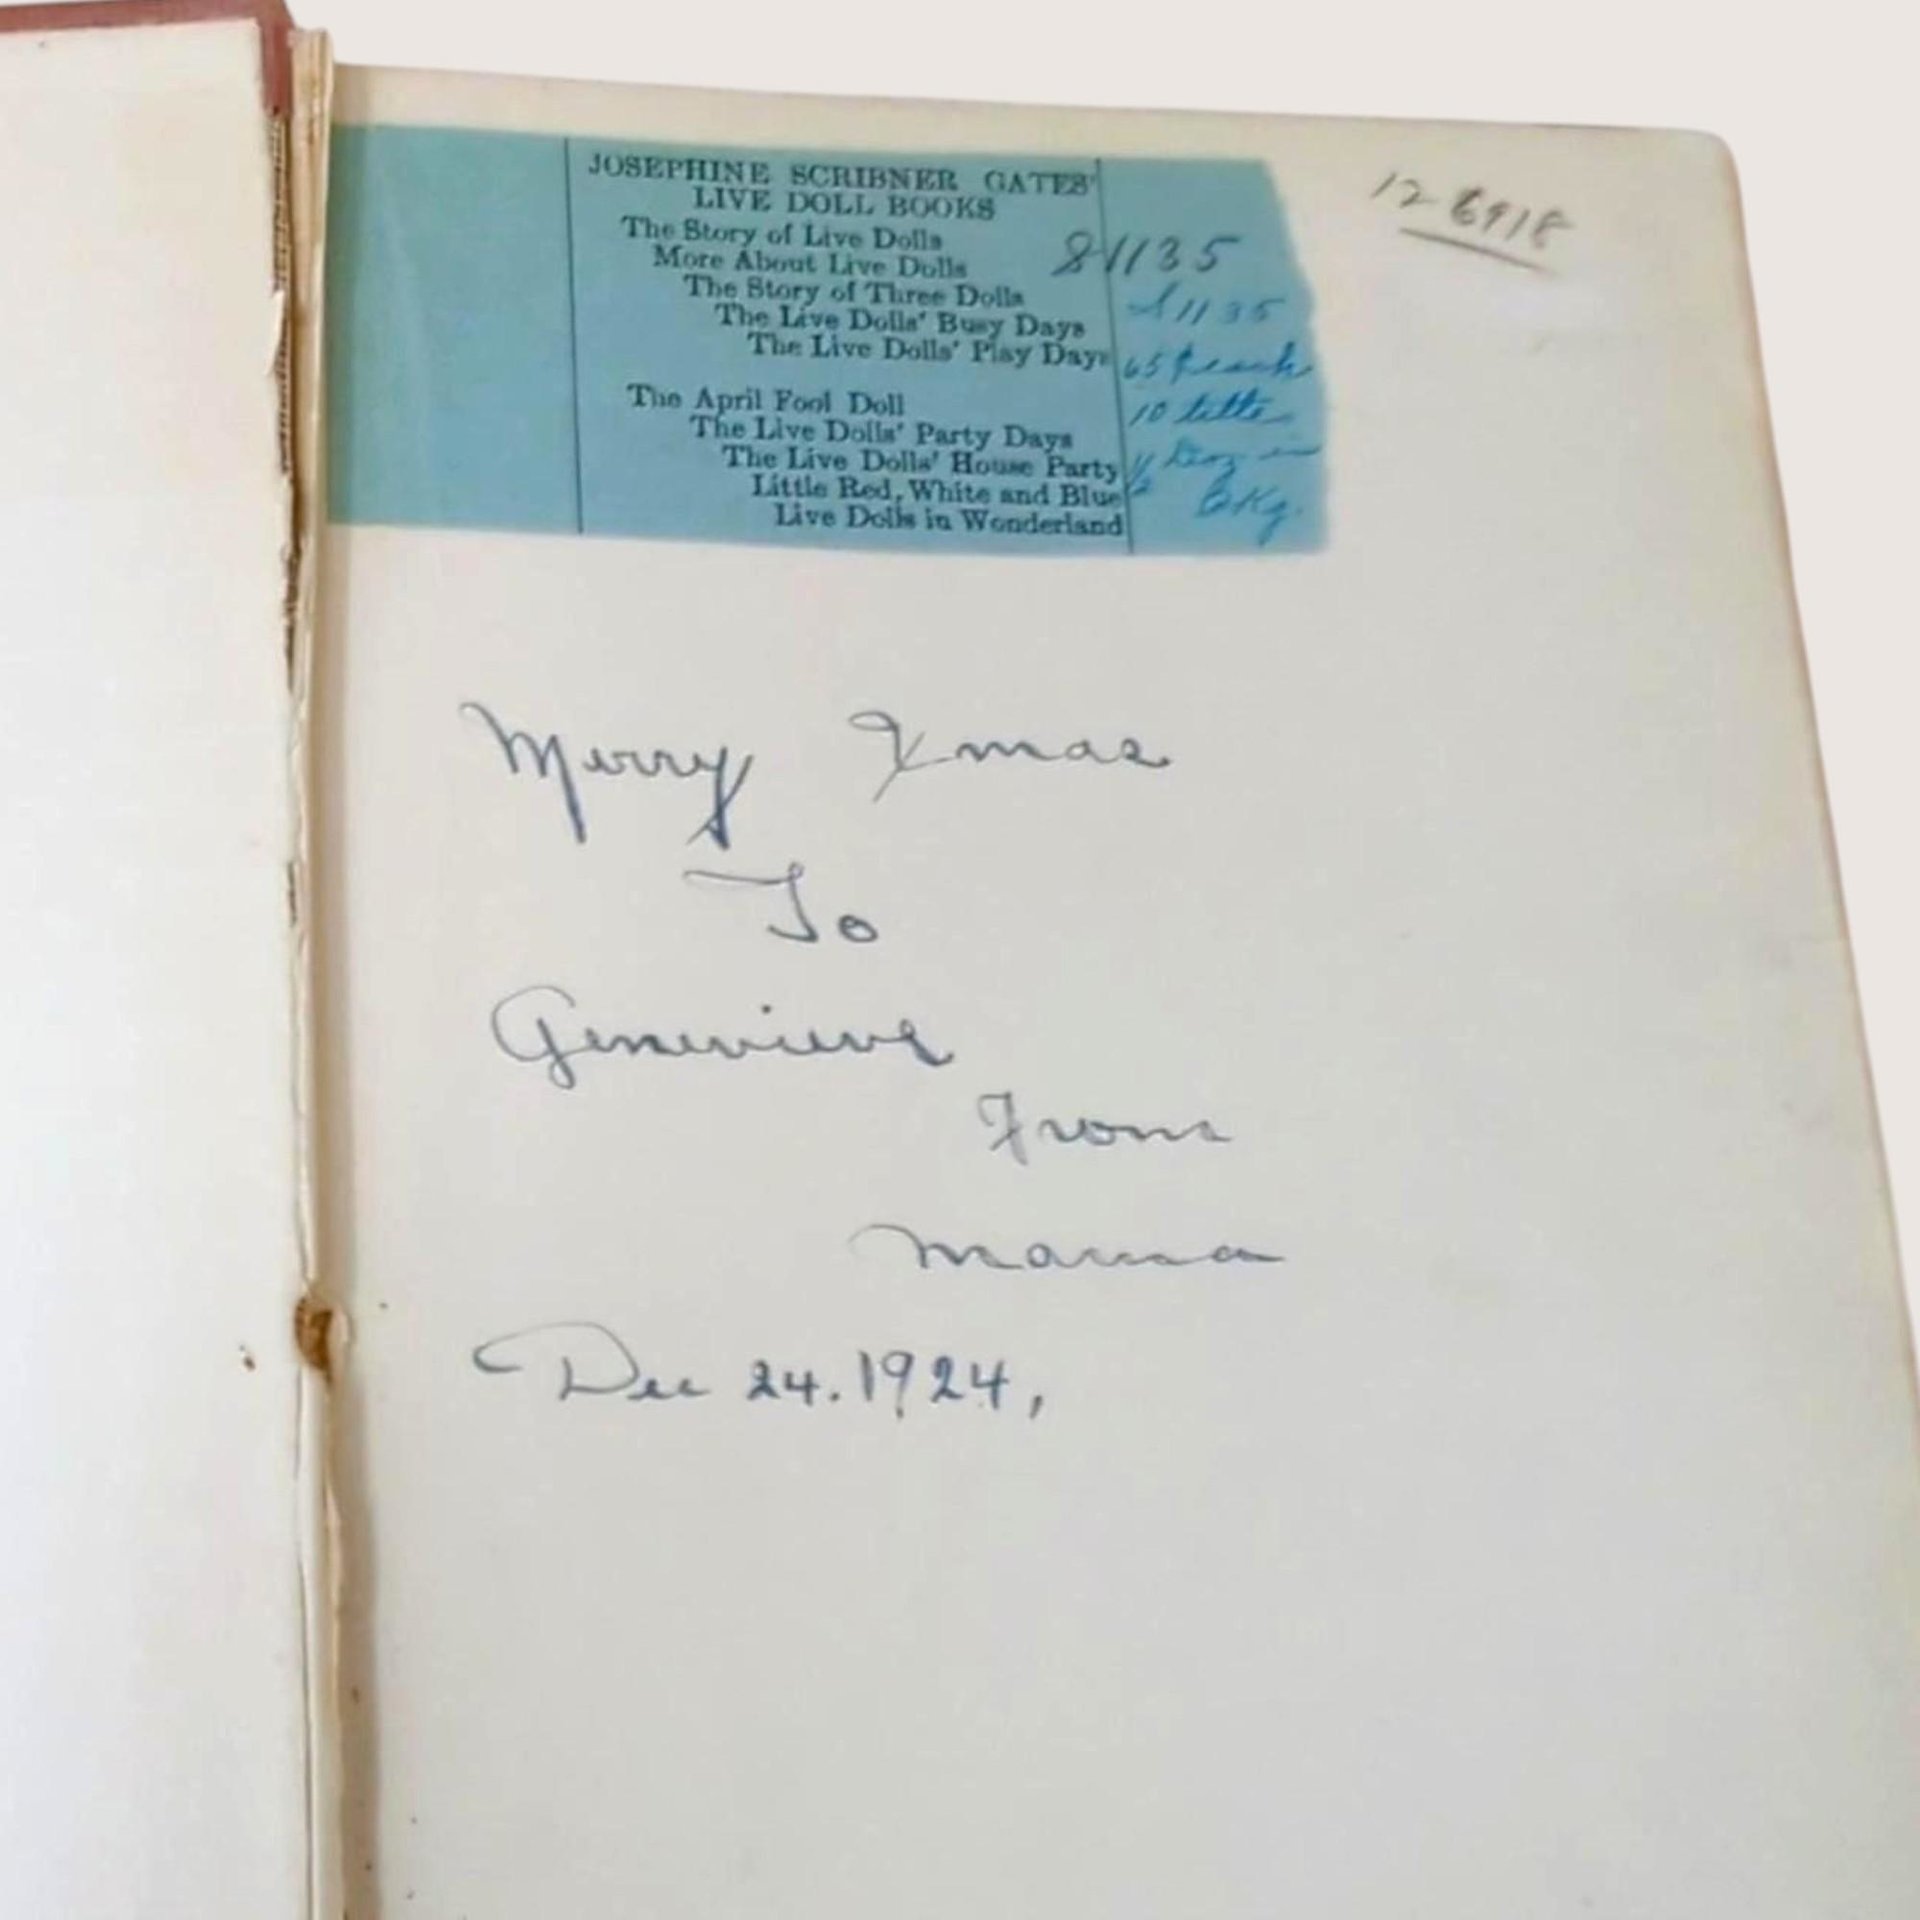 JOSEPHINE SCRIBNER GATES'
LIVE DOLL BOOKS
The Story of Live Dolls
More About Live Dolls
The Story of Three Dolls
The Live Dolls' Busy Days
The Live Dolls' Play Days
The April Fool Doll
The Live Dolls' Party Days
The Live Dolls' House Party
Little Red, White and Blue
Live Dolls in Wonderland
81135
81135
10 title
12-6918
Merry Xmas
To
Genevieve
From
Mama
Dec 24. 1924,